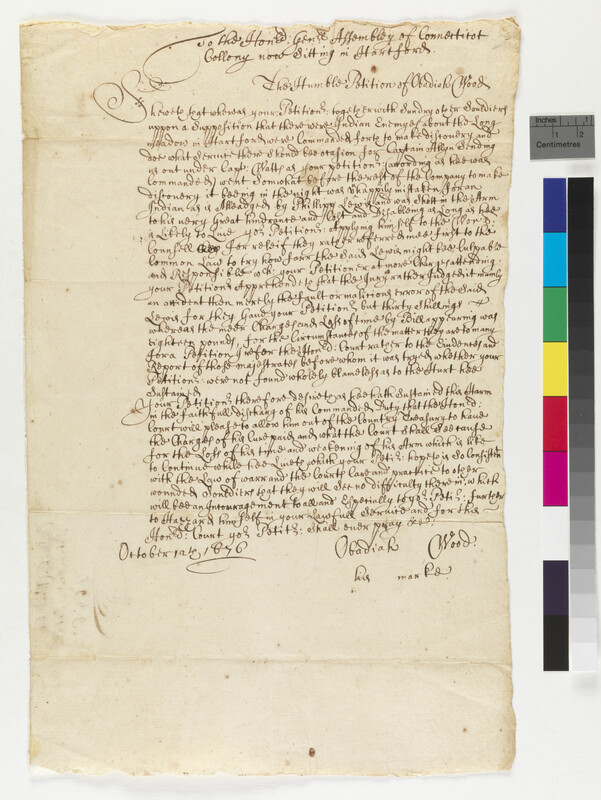 To the Honrd: Genrll Assembley of Connecticot
Collony now Sitting in Hartford.
The Humble Petition of Obadiah Wood
Sheweth that whereas your Petitionr: together with Sundry other Souldiers
uppon a Supposition that there were Indian Enemyes about the Long
meadow in Hartford were Commanded forth to make discovery and
doe what Service there Should bee ocasion for Captain Allyn Sending
us out under Capt: Watts as your petitionr: according as hee was
Commanded went Somwhat before the rest of the Company to make
discovery it beeing in the night was unhappily mistaken for an
Indian as is Alleadged by Phillipp Lewis and was Shott in the Arm
to his very Great hindrance and Hurt and disableing as Long as hee
is Likely to Live yor Petitionr: applying himself to the Honrd:
Counsell for releif they rather referred mee first to the
Common Law to try how farr the Said Lewis might bee Culpable
and Responsible wch: your Petitioner at more Charge attending
your Petitionr apprehends that the Jury rather Judged it mainly
an accident then meerly the fault or malicious error of the Said
Lewis for they Gave your Petitionr but thirty Shillings
whereas the meer Charges and Loss of time by Bill appearing was
Eighteen pounds, for the Circumstances of the matter they are to many
for a Petition I refer the Honrd: Court rather to the Evidences and
Report of those majestrates before whom it was tryed whether your
Petitionr: were not found wholely blameless as to the Hurt hee
Sustained
Your Petitionr therefore desires as hee hath Sustained this Harm
in the faithfull discharg of his Commanded Duty that the Honrd:
Court will please to allow him out of the Country Treasury to have
the Charges of his Cure paid and what the Court Shall See cause
for the Loss of his time and weakening of his Arm which is like
to Continue while hee Lives which your Petitr: hopes is So Consistent
with the Law of warr and the Courts Lawes and practice to other
wounded Souldiers that they will See no difficulty therein, which
will bee an Encouragement to all and Especially to yor: Petitr: further
to Hazard himself in your Lawfull Service and for this
Honrd: Court yor Petitr: Shall ever pray &c:
October 12th 1676 Obadiah Wood:
his marke
Inches 1 2
Centimetres